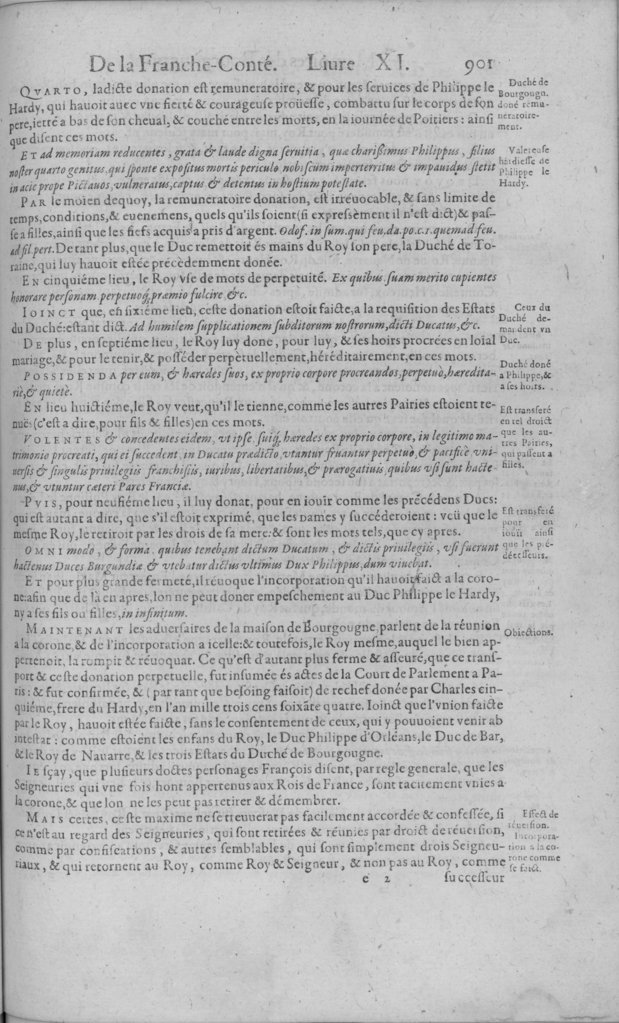 De la Franche-Conté. Liure XI. 901
QVARTO, ladicte donation est remuneratoire, & pour les seruices de Philippe le
Hardy, qui hauoit auec vne fierté & courageuse proüesse, combattu sur le corps de son
pere, ietté a bas de son cheual, & couché entre les morts, en la iournée de Poitiers: ainsi
que disent ces mots.
Duché de
Bourgongn.
doné remu-
neratoire-
ment.
Et ad memoriam reducentes, grata & laude digna seruitia, quæ charißimus Philippus, filius
noster quarto genitus, qui sponte expositus mortis periculo nobiscum imperterritus & impauidus stetit
in acie prope Pictauos, vulneratus, captus & detentus in hostium potestate.
Valereuse
hardiesse de
Philippe le
Hardy.
PAR le moien dequoy, la remuneratoire donation, est irréuocable, & sans limite de
temps, conditions, & euenemens, quels qu'ils soient (si expressèment il n'est dict) & pas-
se a filles, ainsi que les fiefs acquis a pris d'argent. Odof. in sum. qui feu. da. po. c. 1. quemad feu.
ad fil. pert. De tant plus, que le Duc remettoit és mains du Roy son pere, la Duché de To-
raine, qui luy hauoit estée précèdemment donée.
EN cinquiéme lieu, le Roy vse de mots de perpetuité. Ex quibus suam merito cupientes
honorare personam perpetuoq, præmio fulcire &c.
IOINCT que, en sixiéme lieu, ceste donation estoit faicte, a la requisition des Estats
du Duché: estant dict. Ad humilem supplicationem subditorum nostrorum, dicti Ducatus, &c.
Ceux du
Duché de-
mandent vn
Duc.
DE plus, en septiéme lieu, le Roy luy done, pour luy, & ses hoirs procrées en loial
mariage, & pour le tenir, & possèder perpetuellement, héréditairement, en ces mots.
POSSIDENDA per eum, & hæredes suos, ex proprio corpore procreandos, perpetuò, hæredita-
riè, & quietè.
Duché doné
a Philippe, &
a ses hoirs.
EN lieu huictiéme, le Roy veut, qu'il le tienne, comme les autres Pairies estoient te-
nuës: (c'est a dire, pour fils & filles) en ces mots.
VOLENTES & concedentes eidem, vt ipse suiq, hæredes ex proprio corpore, in legitimo ma-
trimonio procreati, qui ei succedent, in Ducatu prædicto, vtantur fruantur perpetuò, & pacificè vni-
uersis & singulis priuilegiis franchisiis, iuribus, libertatibus, & prærogatiuis, quibus vsi sunt hacte
nus, & vtuntur cæteri Pares Franciæ.
Est transferé
en tel droict
que les au-
tres Pairies,
qui passent a
filles.
PVIS, pour neufiéme lieu, il luy donat, pour en iouïr comme les précédens Ducs:
qui est autant a dire, que s'il estoit exprimé, que les DAMES y succéderoient: veü que le
mesme Roy, le retiroit par les drois de sa mere: & sont les mots tels, que cy apres.
OMNI modo, & forma quibus tenebant dictum Ducatum, & dictis priuilegiis, vsi fuerunt
hactenus Duces Burgundiæ & vtebatur dictus vltimus Dux Philippus, dum viuebat.
Est transferé
pour en
iouïr ainsi
que les pré-
décesseurs.
ET pour plus grande fermeté, il réuoque l'incorporation qu'il hauoit faict a la coro-
ne: afin que de là en apres, lon ne peut doner empeschement au Duc Philippe le Hardy,
ny a ses fils ou filles, in infinitum.
MAINTENANT les aduersaires de la maison de Bourgougne, parlent de la réunion
a la corone, & de l'incorporation a icelle: & toutefois, le Roy mesme, auquel le bien ap-
pertenoit, la rompit & réuoquat. Ce qu'est d'autant plus ferme & asseuré, que ce trans-
port & ceste donation perpetuelle, fut insumée és actes de la Court de Parlement a Pa-
ris: & fut confirmée, & (par tant que besoing faisoit) de rechef donée par Charles cin-
quiéme, frere du Hardy, en l'an mille trois cens soixãte quatre. Ioinct que l'vnion faicte
par le Roy, hauoit estée faicte, sans le consentement de ceux, qui y pouuoient venir ab
intestat: comme estoient les enfans du Roy, le Duc Philippe d'Orléans, le Duc de Bar,
& le Roy de Nauarre, & les trois Estats du Duché de Bourgougne.
Obiections.
IE sçay, que plusieurs doctes personages François disent, par regle generale, que les
Seigneuries qui vne fois hont appertenus aux Rois de France, sont tacitement vnies a
la corone, & que lon ne les peut pas retirer & démembrer.
MAIS certes, ceste maxime ne se treuuerat pas facilement accordée & confessée, si
ce n'est au regard des Seigneuries, qui sont retirées & réunies par droict de réuersion,
comme par confiscations, & autres semblables, qui sont simplement drois Seigneu-
riaux, & qui retornent au Roy, comme Roy & Seigneur, & non pas au Roy, comme
Effect de
réuersion.
Incorpora-
tion a la co-
rone comme
se faict.
e 2 successeur